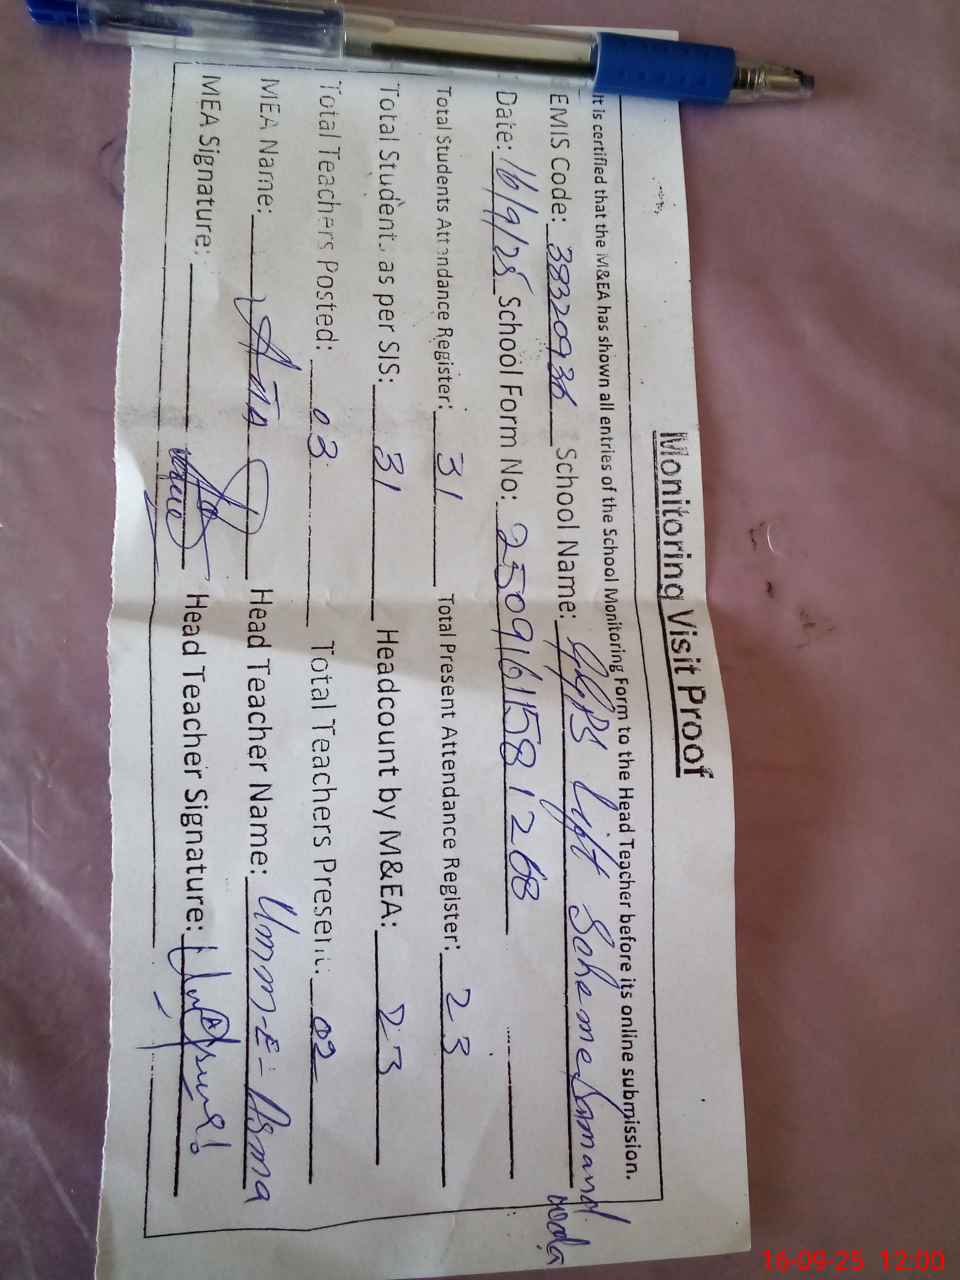 Monitoring Visit Proof
It is certified that the M&EA has shown all entries of the School Monitoring Form to the Head Teacher before its online submission.
EMIS Code: 38320936 School Name: GGPS Lift Scheme Samand wala
Date: 16/9/25 School Form No: 25091611581268
Total Students Attendance Register: 31 Total Present Attendance Register: 23
Total Students as per SIS: 31 Headcount by M&EA: 23
Total Teachers Posted: 03 Total Teachers Present: 02
MEA Name: Head Teacher Name: Umm-E-Asma
MEA Signature: Head Teacher Signature:
16-09-25 12:00